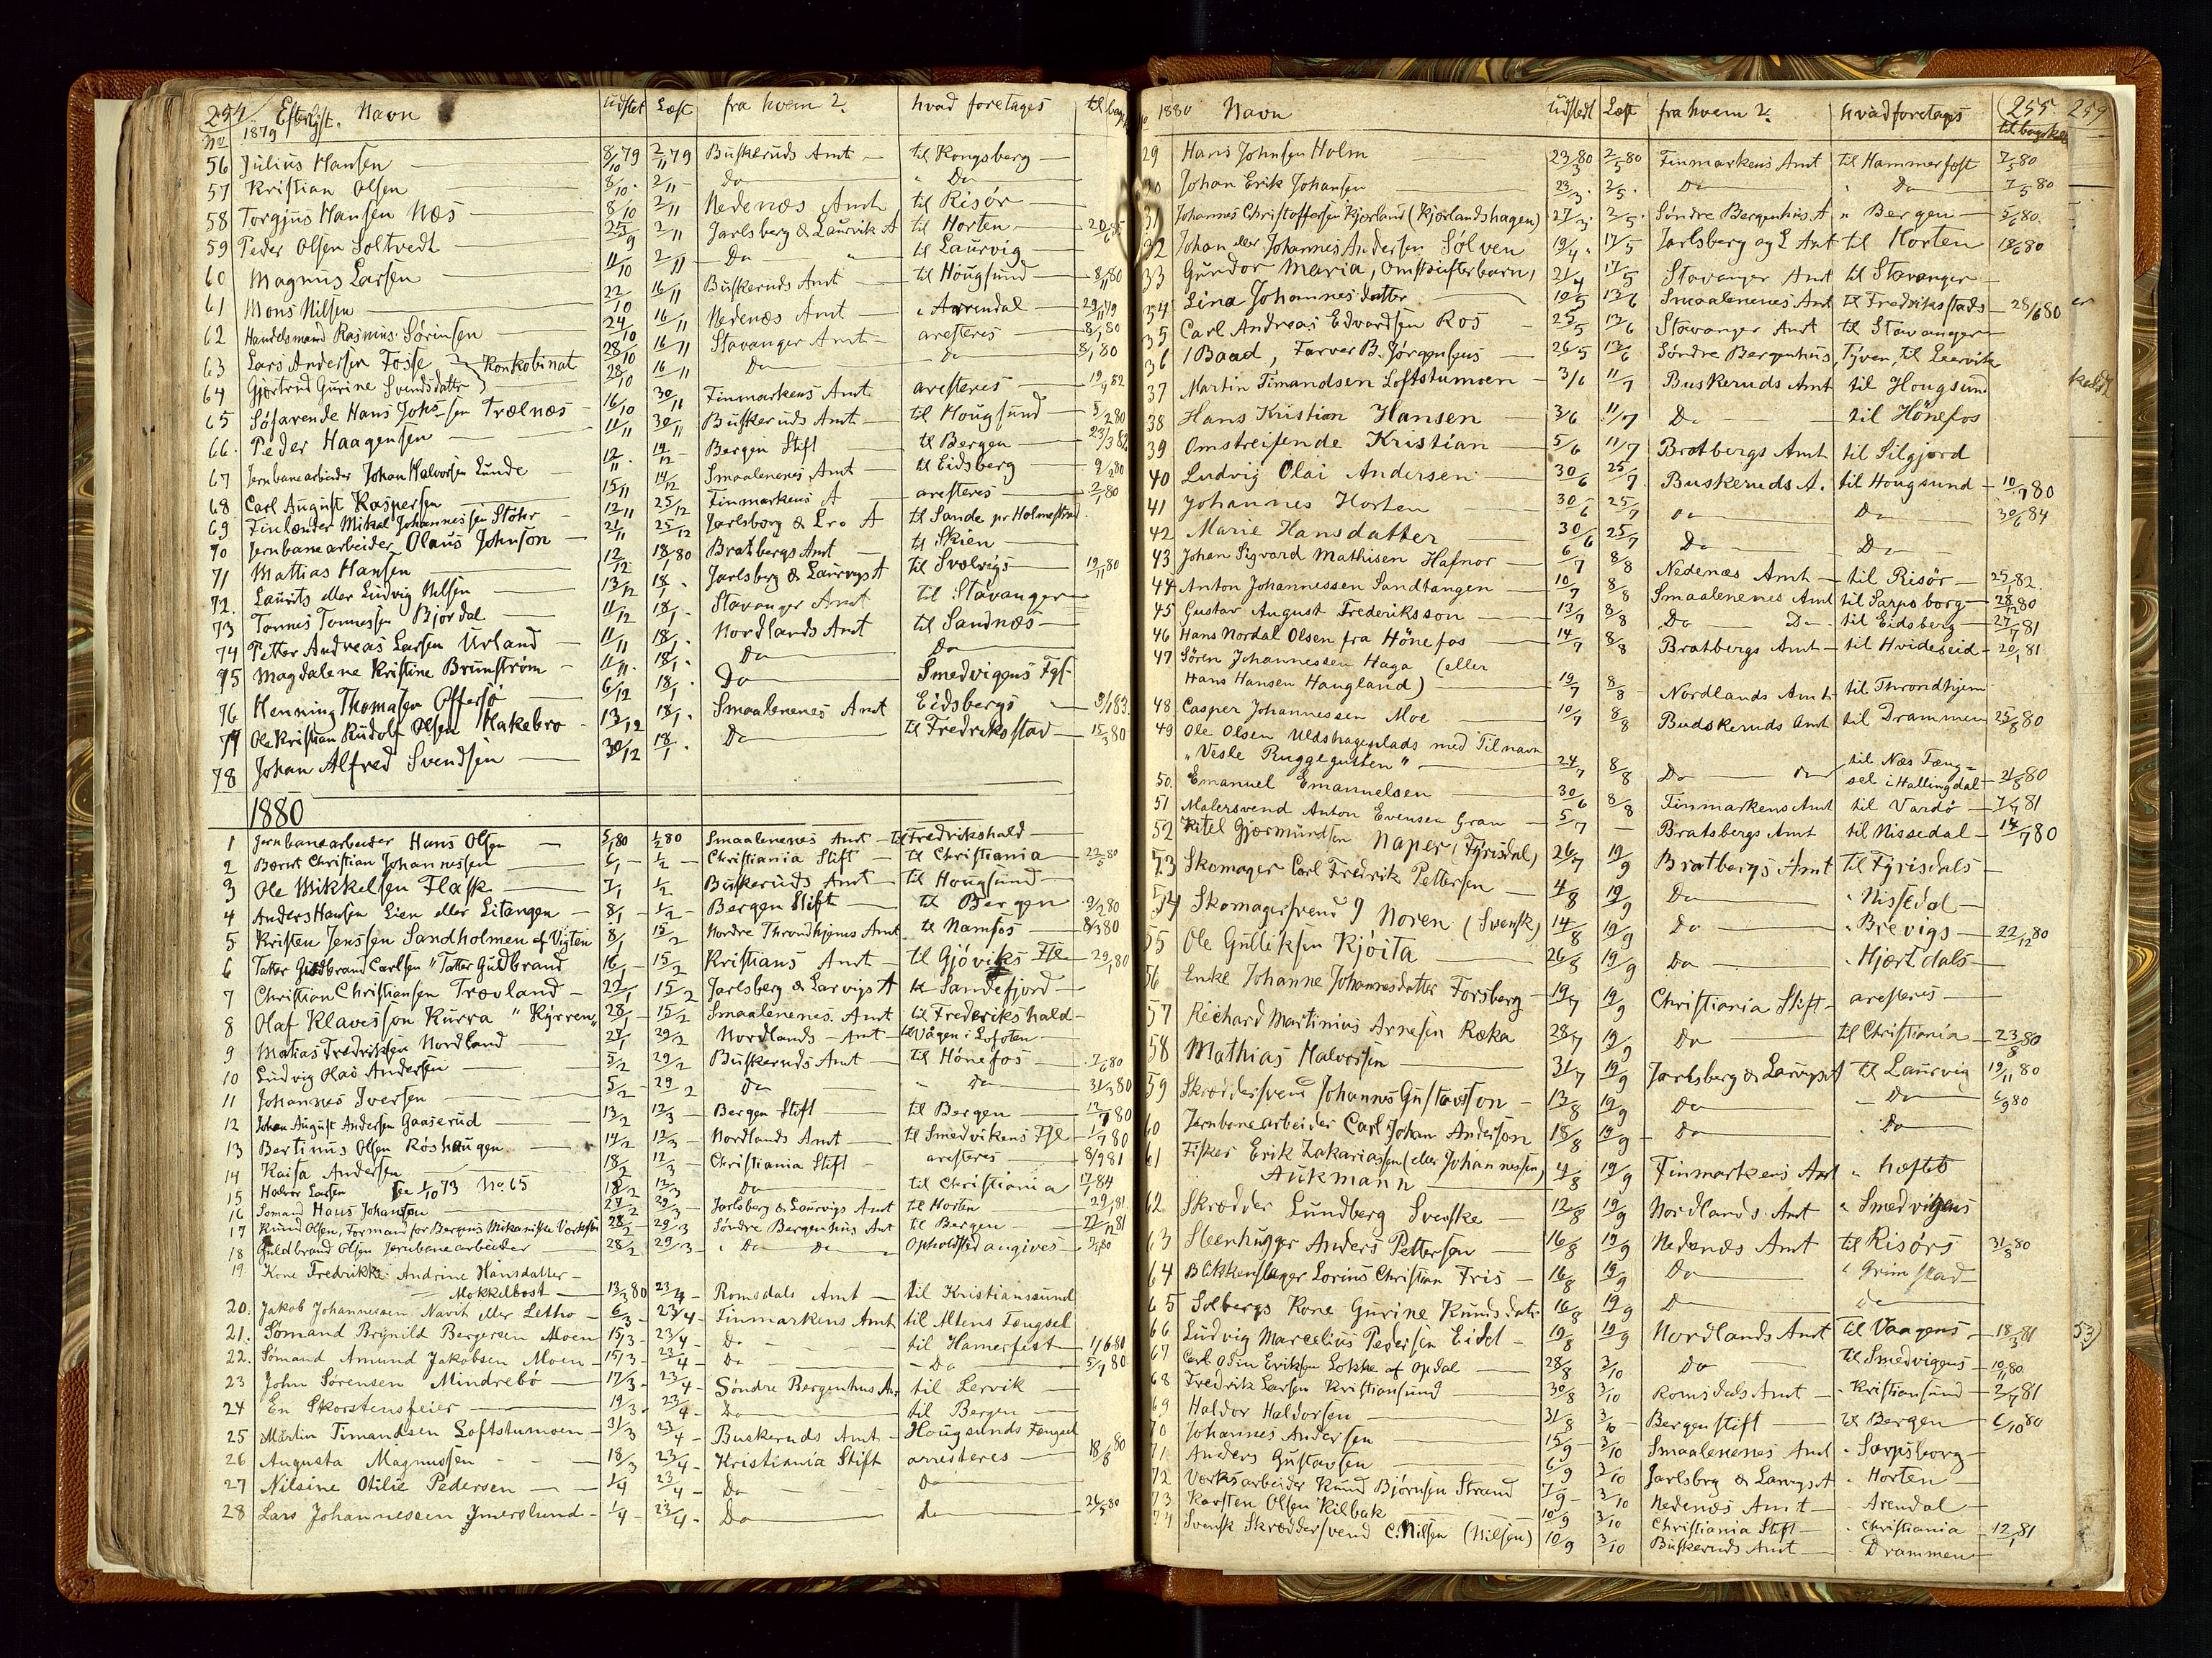 254 Efterlyst. Navn udstet Læst fra hvem? hvad foretages tilbage
No 1879
56 Julius Hansen 8/10 79 2/11 79 Buskeruds Amt til Kongsberg
57 Kristian Olsen 8/10 2/11 Do " Do
58 Torgjus Hansen Næs 8/10 2/11 Nedenæs Amt til Risör
59 Peder Olsen Soltvedt 25/9 2/11 Jarlsberg & Laurvik A til Horten
60 Magnus Larsen 11/10 2/11 Do til Laurvig
61 Mons Nilsen 22/10 16/11 Buskeruds Amt til Hougsund 8/11 80
62 Handelsmand Rasmus Sörensen 24/10 16/11 Nedenæs Amt " Arendal 29/11 79
63 Lars Andersen Fosse } Konkobinat 28/10 16/11 Stavanger Amt aresteres 8/1 80
64 Gjertrud Gurine Svendsdatter 28/10 16/11 Do Do 8/1 80
65 Söfarende Hans Johs sen Trælnæs 16/10 30/11 Finmarkens Amt aresteres 19/9 82
66. Peder Haagensen 11/11 30/11 Buskeruds Amt til Hougsund 3/2 80
67 Jernbanearbeider Johan Halvorsen Lunde 12/11 14/12 Bergen Stift til Bergen 23/3 82
68 Carl August Kaspersen 15/11 14/12 Smaalenenes Amt til Eidsberg 9/2 80
69 Finlænder Mikal Johannessen Stöhr 12/11 25/12 Finmarkens A aresteres 2/1 80
70 Jernbanearbeider Olaus Johnson 21/11 25/12 Jarlsborg & Lr. A til Sande pr Holmestrand
71 Mathias Hansen 12/12 18/1 80 Bratbergs Amt til Skien
72. Laurits eller Ludvig Nilsen 13/12 18/1 Jarlsberg & Laurvigs A til Svelvigs 19/11 80
73 Tönnes Tönnesen Bjordal 11/12 18/1 Stavanger Amt til Stavanger
74 Petter Andreas Larsen Urland 11/11 18/1 Nordlands Amt til Sandnæs
75 Magdalene Kristine Brunström 11/11 18/1 Do Do
76 Henning Thomasen Offersö 6/12 18/1 Do Smedvigens Fgs
77 Ole Kristian Rudolf Olsen Hakebro 13/12 18/1 Smaalenenes Amt Eidsbergs 3/1 83
78 Johan Alfred Svendsen 30/12 18/1 Do til Fredriksstad 15/3 80
1880
1 Jernbanearbeider Hans Olsen 5/1 80 1/2 80 Smaalenenes Amt til Fredrikshald
2 Bernt Christian Johannessen 6/1 1/2 Christiania Stift til Christiania 22/5 80
3 Ole Mikkelsen Flask 7/1 1/2 Buskeruds Amt til Hougsund
4 Anders Hansen Lien eller Litangen 8/1 1/2 Bergen Stift til Bergen 9/2 80
5 Kristen Jenssen Sandholmen af Vigten 8/1 15/2 Nordre Throndhjems Amt til Namsos 8/3 80
6 Tatter Gudbrand Carlsen "Tatter Gudbrand 16/1 15/2 Kristians Amt til Gjöviks Fgl 29/1 80
7 Christian Christiansen Trovland 22/1 15/2 Jarlsberg & Larvigs A til Sandefjord
8 Olaf Klavesson Kurra "Kyrren" 28/1 15/2 Smaalenenes Amt til Frederikshald
9 Matias Fredriksen Nordland 28/1 29/2 Nordlands Amt til Vågen i Lofoten
10 Ludvig Olaö Andersen 5/2 29/2 Buskeruds Amt til Hönefos 2/6 80
11 Johannes Iversen 5/2 29/2 Do " Do 31/3 80
12 Johan August Andersen Gaaserud 13/2 12/3 Bergen Stift til Bergen 12/7 80
13 Bertinus Olsen Röshaugen 14/2 12/3 Nordlands Amt til Smedvikens Fgl 1/7 80
14 Kaisa Andersen 18/2 12/3 Christiania Stift aresteres 8/9 81
15 Halvor Larsen Se 1/10 73 No. 65 18/2 12/3 Do til Christiania 17/1 84
16 Sömand Hans Johansen 27/2 29/3 Jarlsberg & Laurvigs Amt til Horten 29/1 81
17 Knud Olsen, Formand for Bergens Mikaniske Værksted 28/2 29/3 Söndre Bergenhus Amt til Bergen 22/12 81
18 Guldbrand Olsen Jernbanearbeider 28/2 29/3 " Do Do Opholdssted angives 80
19. Kone Fredrikke Andrine Hansdatter
Mokkelbost 13/3 80 23/4 Romsdals Amt til Kristianssund
20. Jakob Johannessen Navit eller Letho 6/3 23/4 Finmarkens Amt til Altens Fængsel
21. Sömand Brynild Bergersen Moen 15/3 23/4 Do til Hamerfest 1/6 80
22. Sömand Amund Jakobsen Moen 15/3 23/4 Do Do 5/7 80
23 John Sörensen Mindrebö 17/3 23/4 Söndre Bergenhus Amt til Lervik
24 En Skorstensfeier 19/3 23/4 Do til Bergen
25 Martin Timandsen Loftstumoen 31/3 23/4 Buskeruds Amt Hougsunds Fængsel
26 Augusta Magnussen 18/3 23/4 Kristiania Stift arresteres 18/8 80
27 Nilsine Otilie Pedersen 1/4 23/4 Do Do
28 Lars Johannessen Ymerslund 1/4 23/4 Do Do 26/5 80
1880 Navn Udstedt Læst fra hvem? hvad foretages 255 259
tilbagekal
29 Hans Johnsen Holm 23/3 80 2/5 80 Finmarkens Amt til Hammerfest 7/5 80
30 Johan Erik Johansen 23/3 2/5 Do " Do 7/5 80
31 Johannes Christoffersen Kjorland (Kjorlandshagen) 27/3 2/5 Söndre Bergenhus A " Bergen 5/6 80
32 Johan eller Johannes Andersen Sölven 19/4 17/5 Jarlsberg og L Amt til Horten 18/6 80
33 Gundor Maria, Omstreiferbarn, 21/4 17/5 Stavanger Amt til Stavanger
34 Lina Johannesdatter 10/5 13/6 Smaalenenes Amt til Fredriksstads 28/6 80
35 Carl Andreas Edvardsen Ros 25/5 13/6 Stavanger Amt til Stavanger
36 1 Baad, Farver B. Jörgensens 26/5 13/6 Söndre Bergenhus, Tyven, til Leervik
37 Martin Timandsen Loftstumoen 3/6 11/7 Buskeruds Amt til Hougsund
38 Hans Kristian Hansen 3/6 11/7 Do til Hönefos
39 Omstreifende Kristian 5/6 11/7 Bratbergs Amt til Silgjord
40 Ludvig Olai Andersen 30/6 25/7 Buskeruds A. til Hougsund 10/7 80
41 Johannes Horten 30/6 25/7 Do Do 30/6 84
42 Marie Hansdatter 30/6 25/7 Do Do
43 Johan Sigvard Mathisen Hafnor 6/7 8/8 Nedenæs Amt til Risör 25/1 82
44 Anton Johannessen Sandtangen 10/7 8/8 Smaalenenes Amt til Sarpsborg 28/12 80
45 Gustav August Frederiksson 13/7 8/8 Do Do til Eidsberg 27/7 81
46 Hans Nordal Olsen fra Hönefos 14/7 8/8 Bratbergs Amt til Hvideseid 20/1 81
47 Sören Johannessen Haga (eller
Hans Hansen Haugland) 19/7 8/8 Nordlands Amt til Throndhjem
48 Casper Johannessen Moe 10/7 8/8 Budskeruds Amt til Drammen 25/8 80
49 Ole Olsen Uldshagenplads med Tilnavn
"Vesle Ruggegutten" 24/7 8/8 Do Do til Næs Fæng=
sel i Hallingdal 21/8 80
50. Emanuel Emanuelsen 30/6 8/8 Finmarkens Amt til Vardö 7/7 81
51 Malersvend Anton Evensen Gran 5/7 — Bratsbergs Amt til Nissedal 14/7 80
52 Kitel Gjermundsen Naper (Fyrisdal) 26/7 19/9 Bratbergs Amt til Fyrisdals
53 Skomager Carl Fredrik Pettersen 4/8 19/9 Do " Nissedal
54 Skomagersvend J Noren (Svensk) 14/8 19/9 Do " Brevigs 22/12 80
55 Ole Gulliksen Kjöita 26/8 19/9 Do " Hjertdals
56 Enke Johanne Johannesdatter Forsberg 19/7 19/9 Christiania Stift aresteres
57 Richard Martinius Arnesen Ræka 28/7 19/9 Do til Christiania 23/8 80
58 Mathias Halvorsen 31/7 19/9 Jarlsberg & Larvigs A til Laurvig 19/11 80
59 Skræddersvend Johannes Gustavsson 13/8 19/9 Do Do 6/9 80
60 Jernbanearbeider Carl Johan Anderson 18/8 19/9 Do Do
61 Fisker Erik Zakariassen (eller Johannessen)
Aukmann 4/8 19/9 Finmarkens Amt " hæftes
62 Skrædder Lundberg Svenske 12/8 19/9 Nordlands Amt " Smedvigens
63 Steenhugger Anders Pettersen 16/8 19/9 Nedenæs Amt til Risörs 31/8 80
64 Blikkenslager Lorius Christian Fris 16/8 19/9 Do " Grimstad
65 Solbergs Kone Gurine Knudsdatr 16/8 19/9 Do Do
66 Ludvig Marcelius Pedersen Eidet 19/8 19/9 Nordlands Amt til Vaagens 18/3 81
67 Carl Odin Eriksen Lökke af Opdal 28/8 3/10 Do til Smedvigens 10/1 80
68 Fredrik Larsen Kristiansund 30/8 3/10 Romsdals Amt " Kristiansund 2/7 81
69 Haldor Haldorsen 31/8 3/10 Bergen stift til Bergen 6/10 80
70 Johannes Andersen 15/9 3/10 Smaalenenes Amt " Sarpsborg
71 Anders Gustavsen 6/9 3/10 Jarlsbrg & Larvigs A " Horten
72 Værksarbeider Knud Björnsen Strand 7/9 3/10 Nedenæs Amt " Arendal
73 Karsten Olsen Kilbak 10/9 3/10 Christiania Stift " Christiania 12/1 81
74 Svensk Skræddersvend C. Nilsen (Nilsen) 10/9 3/10 Buskeruds Amt " Drammen